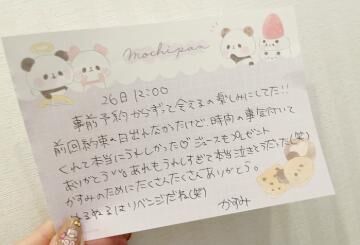 mochipan
26日 12:00
事前予約からずっと会えるの楽しみにしてた!!
前回約束の日出れなかったけど、時間の事気付いて
くれて本当にうれしかった♡ジュースもプレゼント
ありがとう あれもうれしすぎて本当泣きそうだった(笑)
かすみのためにたくさんたくさんありがとう。
はリベンジだね(笑)
かすみ